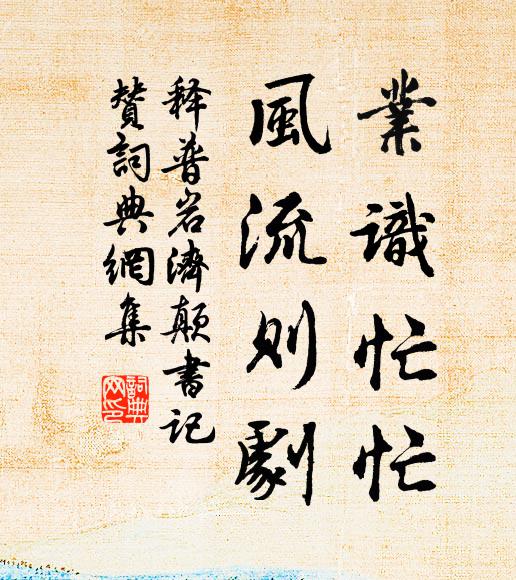 業識忙忙
風流則劇
释普岩濟顛書记
贊詞典網集
詞典網印